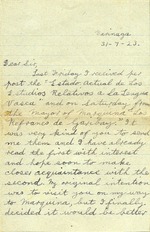 31-7-22.
Dear Sir,
Last Friday I received per
post the "Estado Actual de Los
Estudios Relativos a la Lengua
Vasca" and on Saturday, from
the mayor of Marquina, the
"Refranes de Garibay". It
was very kind of you to send
me them and I have already
read the first with interest
and hope soon to make
closer acquaintance with the
second. My original intention
was to visit you on my way
to Marquina, but I finally
decided it would be better